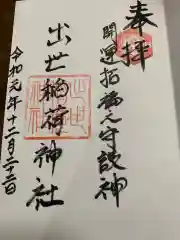 奉拝
開運招福之守護神
出世稲荷神社
令和元年十二月二十二日